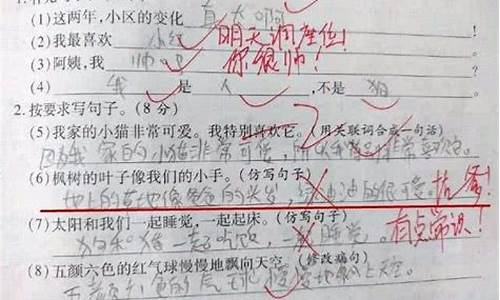 (1)这两年,小区的变化 真大啊
(2)我最喜欢 小红 明天调座位!
(3)阿姨,我 帅吧 你很帅!
(4) 我 是 人 ,不是 狗
2.按要求写句子。(8 分)
(5)我家的小猫非常可爱。我特别喜欢它。(用关联词合成一句话)
因为我家的小猫非常可爱,所以我特别非常喜欢它。
(6)枫树的叶子像我们的小手。(仿写句子)
地上的草地像爸爸的头发,绿油油的很可爱。抗爹!
(7)太阳和我们一起睡觉,一起起床。(仿写句子)
狗和猪一起吃饭,一起睡觉。 有点常识!
(8)五颜六色的红气球慢慢地飘向天空。(修改病句)
五颜六色的气球慢慢地飘上天空。